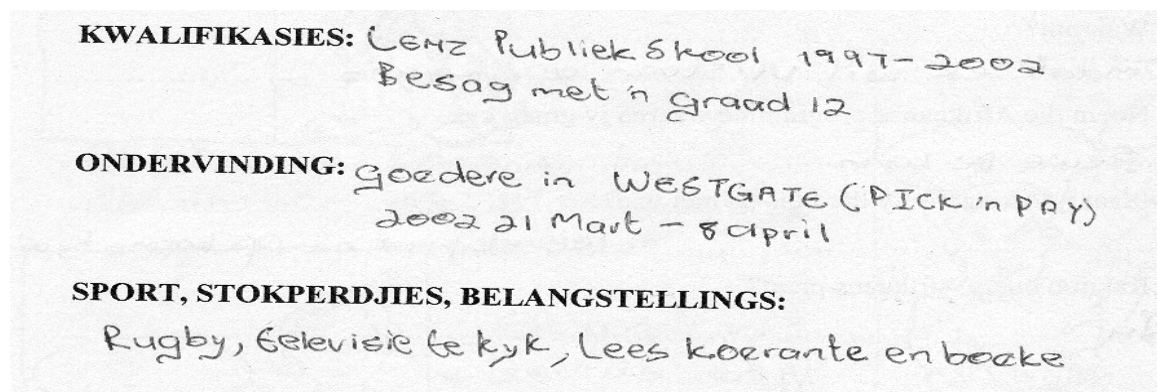 KWALIFIKASIES: Lenz Publiek Skool 1997-2002
Besag met 'n graad 12
ONDERVINDING: goedere in WESTGATE (PICK 'n PAY)
2002 21 Mart - 8 april
SPORT, STOKPERDJIES, BELANGSTELLINGS:
Rugby, televisie te kyk, Lees koerante en boeke